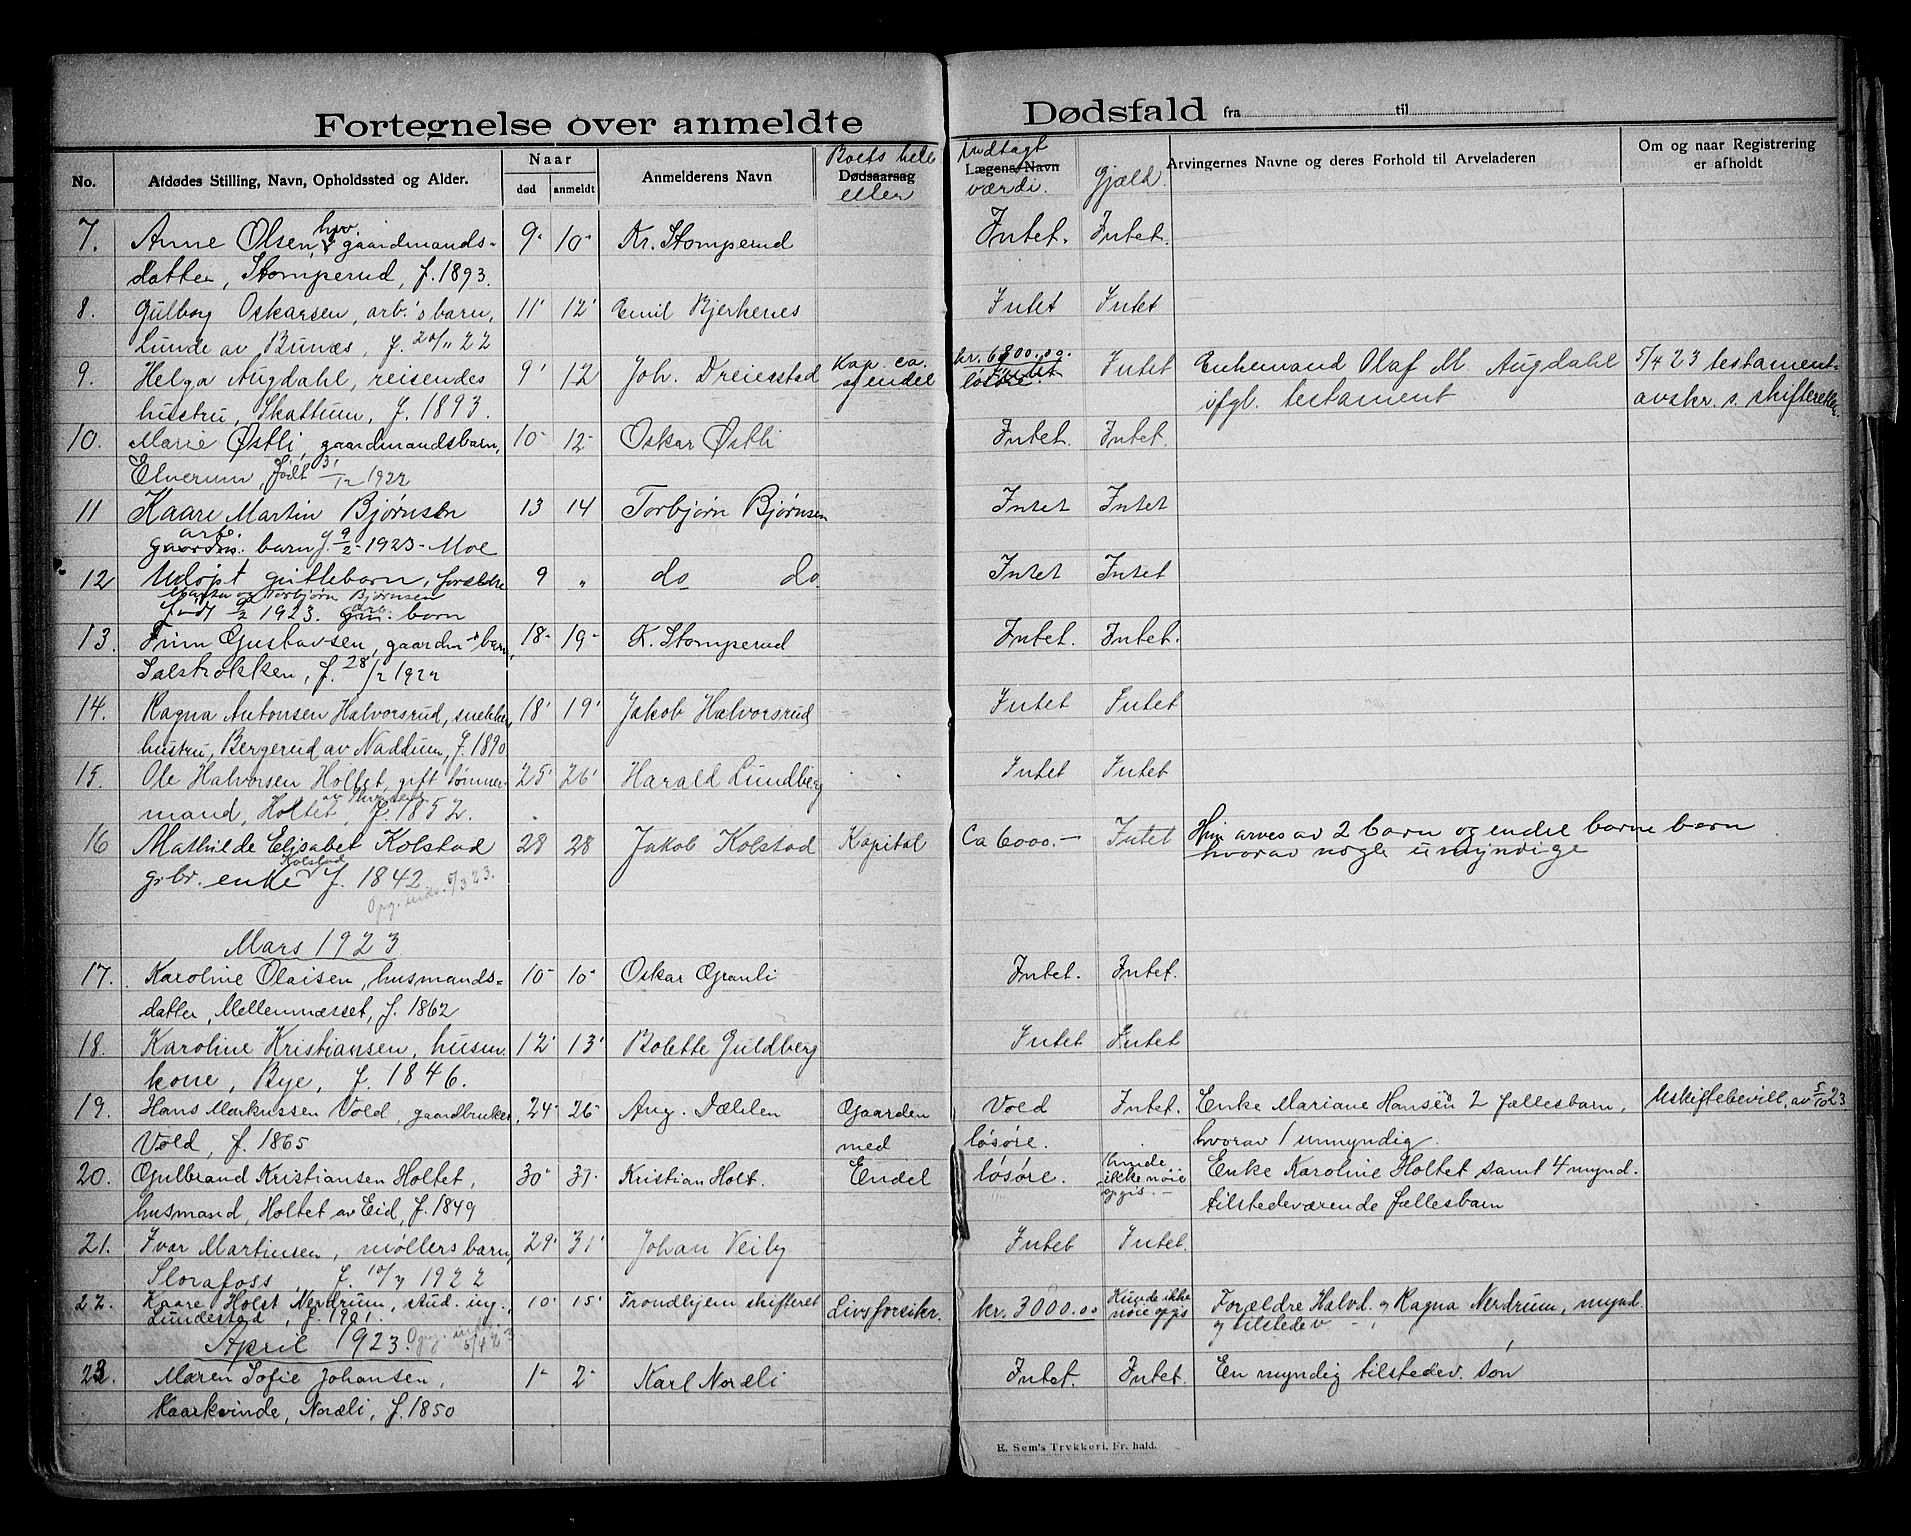 Fortegnelse over anmeldte Dødsfald fra til
No. Afdødes Stilling, Navn, Opholdssted og Alder. Naar død anmeldt Anmelderens Navn Boets hele Dødsaarsag eller Indtagt Lægens Navn værdi. Gjæld. Arvingernes Navne og deres Forhold til Arveladeren Om og naar Registrering er afholdt
7. Anne Olsen, gaardmands- 9- 10- Kr. Stomperud Intet. Intet.
datter, Stomperud, f. 1893.
8. Gulborg Oskarsen, arb.'s barn, 11' 12' Emil Bjerkenes Intet Intet
Lunde av Bunæs, f. 20/11 22
9. Helga Augdahl, reisendes 9' 12 Joh. Dreiesstad Kap. ca. kr. 6800.00. Intet Enkemand Olaf M. Augdahl 5/4 23 testament-
hustru, Skattum, f. 1893. og endel løsøre. ifgl. testament avskr. s. skifteretten.
10. Marie Østli, gaardmandsbarn, 10- 12- Oskar Østli Intet. Intet.
Elverum, født 31/12 1922
11 Kaare Martin Bjørnsen 13 14 Torbjørn Bjørnsen Intet Intet
arb. gaardm. barn f. 9/2-1923- Moe
12 Udøpt guttebarn, forældre 9 " do do. Intet Intet
og Torbjørn Bjørnsen
født 9/2 1923. arb. gm. barn
13. Finn Gustavsen, gaardm-s barn, 18- 19- K. Stomperud Intet. Intet.
Salstrøkken, f. 28/2 1922
14. Ragna Antonsen Halvorsrud, snekker 18' 19' Jakob Halvorsrud Intet Intet
hustru, Bergerud av Naddum, f. 1890
15. Ole Halvorsen Holtet, gift tømmer- 25' 26' Harald Lundberg Intet Intet
mand, Holtet, f. 1852.
16 Mathilde Elisabet Kolstad 28 28 Jakob Kolstad Kapital Ca 6000.- Intet Hun arves av 2 barn og endel barnebarn
grbr. enke Kolstad f. 1842 hvorav nogle umyndige
Opg. inds. 6/3 23.
Mars 1923
17. Karoline Olaisen, husmands- 10- 10- Oskar Granli Intet. Intet.
datter, Mellemnæsset, f. 1862
18. Karoline Kristiansen, husm 12' 13' Bolette Guldberg Intet Intet
kone, Bye, f. 1846.
19. Hans Markussen Vold, gaardbruker, 24- 26- Aug. Dælilen Gaarden Vold Intet. Enke Mariane Hansen 2 fællesbarn, Uskiftebevill. av 5/10 23
Vold, f. 1865 med løsøre. hvorav 1 umyndig.
20. Gulbrand Kristiansen Holtet, 30- 31- Kristian Holt. Endel løsøre. kunde ikke nøie opgis.- Enke Karoline Holtet samt 4 mynd.
husmand, Holtet av Eid, f. 1849 tilstedeværende fællesbarn
21. Ivar Martinsen, møllers barn, 29' 31' Johan Veiby Intet Intet.
Slorafoss, f. 10/7 1922
22. Kaare Holst Nerdrum, stud. ing., 10' 15' Trondhjem skifteret Livsforsikr. kr. 3000.00 Kunde ikke nøie opgis Forældre Halvd. og Ragna Nerdrum, mynd.
Lundestad, f. 1901. og tilstedev - .
April 1923. Opg. inds. 5/4 23
23. Maren Sofie Johansen, 1- 2- Karl Nordli Intet. Intet. En myndig tilstedev. søn
Kaarkvinde, Nordli, f. 1850
E. Sem's Trykkeri, Fr. hald.